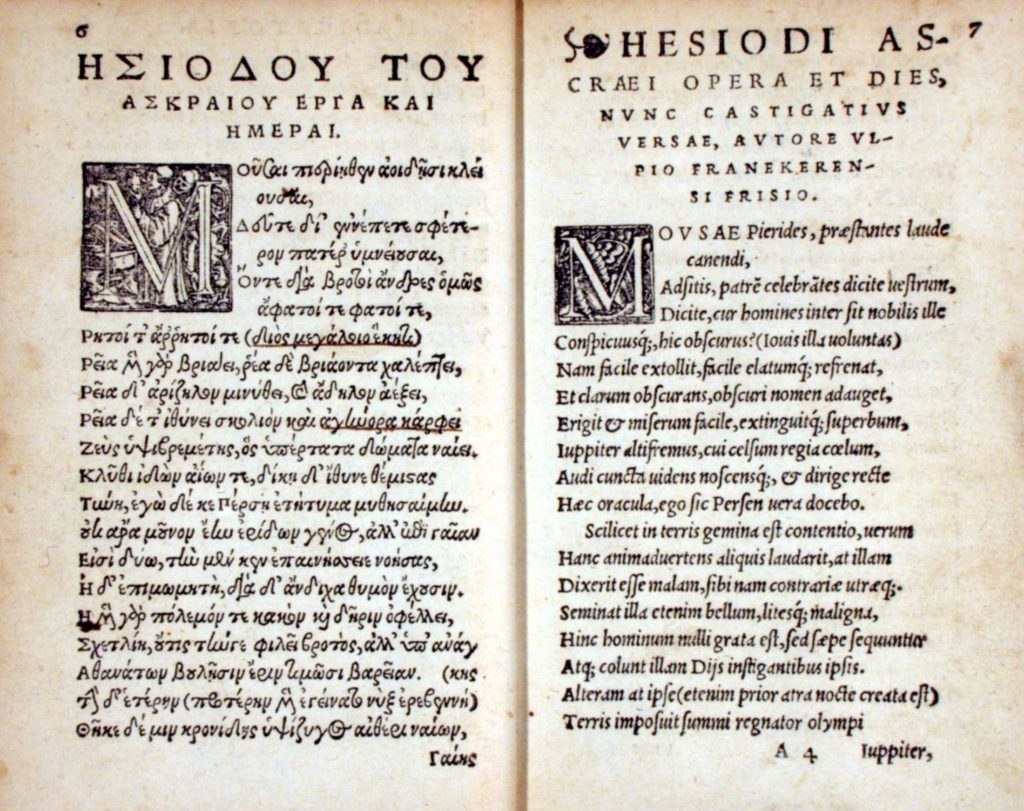 6
ΗΣΙΟΔΟΥ ΤΟΥ
ΑΣΚΡΑΙΟΥ ΕΡΓΑ ΚΑΙ
ΗΜΕΡΑΙ.
ΜΟῦσαι πιερίηθεν ἀοιδῇσι κλεί
ουσαι,
Δεῦτε δί' ἐννέπετε σφέτε-
ρον πατέρ' ὑμνείουσαι,
Ὅντε διὰ βροτοὶ ἄνδρες ὁμῶς
ἄφατοί τε φατοί τε,
Ρητοί τ' ἄῤῥητοί τε (διὸς μεγάλοιο ἕκητι)
Ρεῖα μὲν γὰρ βριάει, ῥέα δὲ βριάοντα χαλέπτει,
Ρεῖα δ' ἀρίζηλον μινύθει, καὶ ἄδηλον ἀέξει,
Ρεῖα δέ τ' ἰθύνει σκολιὸν καὶ ἀγήνορα κάρφει
Ζεὺς ὑψιβρεμέτης, ὃς ὑπέρτατα δώματα ναίει.
Κλῦθι ἰδὼν ἀΐων τε, δίκῃ δ' ἴθυνε θέμιστας
Τύνη, ἐγὼ δέ κε Πέρσῃ ἐτήτυμα μυθησαίμην.
Οὐκ ἄρα μοῦνον ἔην ἐρίδων γένος, ἀλλ' ἐπὶ γαῖαν
Εἰσὶ δύω, τὴν μέν κεν ἐπαινήσειε νοήσας,
Ἡ δ' ἐπιμωμητὴ, διὰ δ' ἄνδιχα θυμὸν ἔχουσιν.
Ἡ μὲν γὰρ πόλεμόν τε κακὸν καὶ δῆριν ὀφέλλει,
Σχετλίη, οὔτις τήνγε φιλεῖ βροτὸς, ἀλλ' ὑπ' ἀνάγ
Ἀθανάτων βουλῇσιν ἔριν τιμῶσι βαρεῖαν. (κης
Τὴν δ' ἑτέρην (προτέρην μὲν ἐγείνατο νὺξ ἐρεβεννή)
Θῆκε δέ μιν κρονίδης ὑψίζυγος αἰθέρι ναίων,
Γαίης
7
HESIODI AS-
CRAEI OPERA ET DIES,
NVNC CASTIGATIVS
VERSAE, AVTORE VL-
PIO FRANEKEREN-
SI FRISIO.
MOVSAE Pierides, præstantes laude
canendi,
Adsitis, patrē celebrātes dicite uestrum,
Dicite, cur homines inter sit nobilis ille
Conspicuusq;, hic obscurus? (Iouis illa uoluntas)
Nam facile extollit, facile elatumq; refrenat,
Et clarum obscurans, obscuri nomen adauget,
Erigit & miserum facile, extinguitq; superbum,
Iuppiter altifremus, cui celsum regia cœlum,
Audi cuncta uidens noscensq;, & dirige recte
Hæc oracula, ego sic Persen uera docebo.
Scilicet in terris gemina est contentio, uerum
Hanc animaduertens aliquis laudarit, at illam
Dixerit esse malam, sibi nam contrariæ utræq;.
Seminat illa etenim bellum, litesq; maligna,
Hinc hominum nulli grata est, sed sæpe sequuntur
Atq; colunt illam Dijs instigantibus ipsis.
Alteram at ipse (etenim prior atra nocte creata est)
Terris imposuit summi regnator olympi
A 4 Iuppiter,